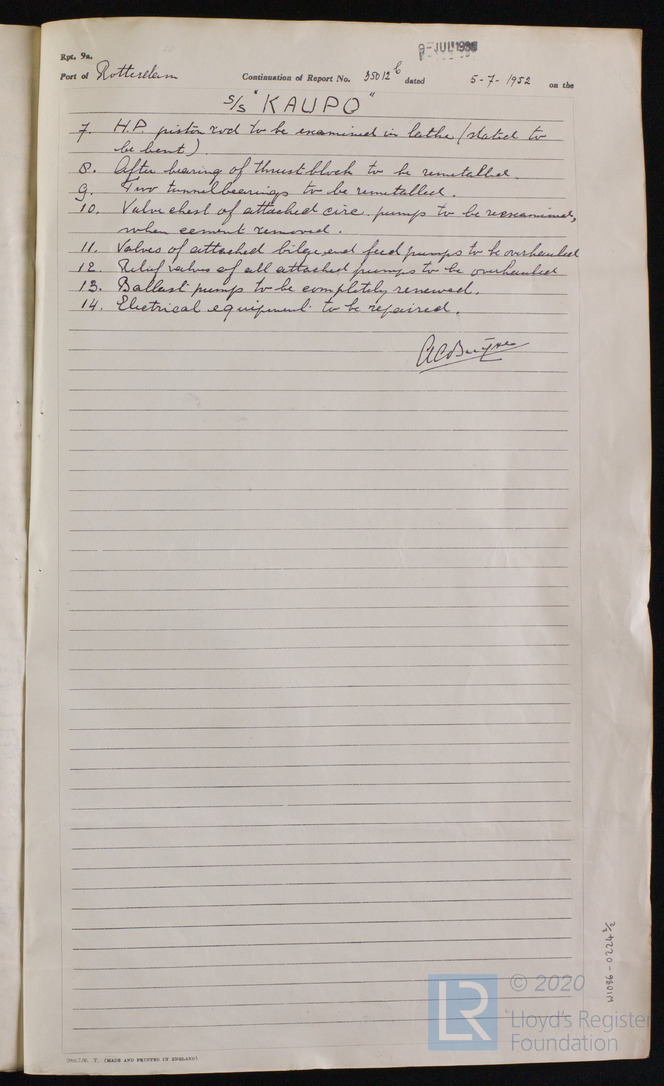 Rpt. 9a.
Port of Rotterdam Continuation of Report No. 35012 b dated 5-7-1952 on the
S/S "KAUPO"
7. H.P. piston rod to be examined in lathe (stated to
be bent).
8. After bearing of thrustblock to be remetalled.
9. Two tunnelbearings to be remetalled.
10. Valve chest of attached circ. pump to be reexamined,
when cement removed.
11. Valves of attached bilge and feed pumps to be overhauled
12. Relief valves of all attached pumps to be overhauled
13. Ballast pump to be completely renewed.
14. Electrical equipment to be repaired.
© 2020
Lloyd's Register
Foundation
T. (MADE AND PRINTED IN ENGLAND)